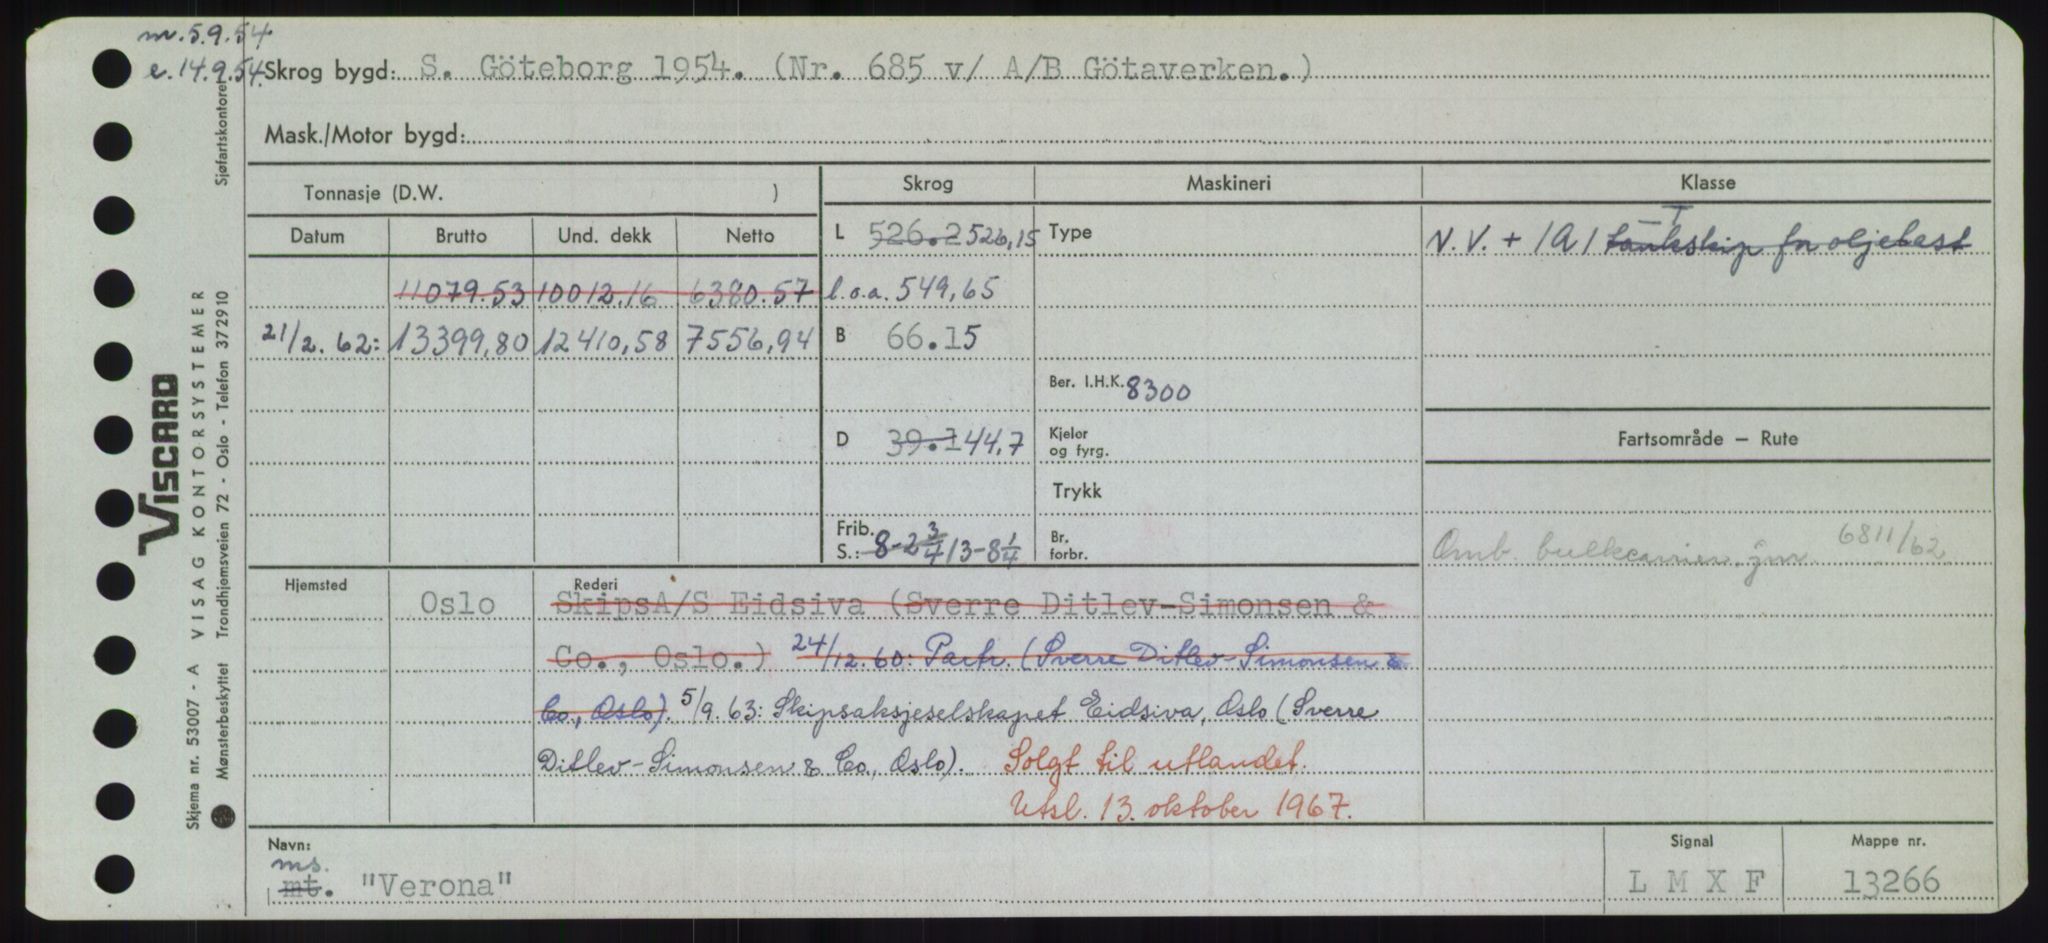 m. 5.9.54
e. 14.9.54.
Skrog bygd: S. Göteborg 1954. (Nr. 685 v/ A/B Götaverken.)
Mask./Motor bygd:
Tonnasje (D.W. )
Skrog
Maskineri
Klasse
Datum Brutto Und. dekk Netto
L 526.2 526,15
Type
N.V. + 1A1 tankskip for oljelast
T
11079.53 10012.16 6380.57
l.o.a. 549,65
21/2. 62: 13399,80 12410,58 7556,94
B 66.15
Ber. I.H.K. 8300
D 39.1 44,7
Kjeler
og fyrg.
Fartsområde – Rute
Trykk
Frib.
S.: 8-2 3/4 13-8 1/4
Br.
forbr.
Omb. bulkcarrier, jnr. 6811/62
Hjemsted Oslo
Rederi
SkipsA/S Eidsiva (Sverre Ditlev-Simonsen &
Co., Oslo.) 24/12.60: Partr. (Sverre Ditlev-Simonsen &
Co., Oslo). 5/9.63: Skipsaksjeselskapet Eidsiva, Oslo (Sverre
Ditlev-Simonsen & Co., Oslo). Solgt til utlandet.
Utsl. 13. oktober 1967.
Navn:
ms.
mt. "Verona"
Signal
L M X F
Mappe nr.
13266
Sjøfartskontoret
VISCARD
VISAG KONTORSYSTEMER
Trondhjemsveien 72 - Oslo - Telefon 372910
Skjema nr. 53007 - A
Mønsterbeskyttet